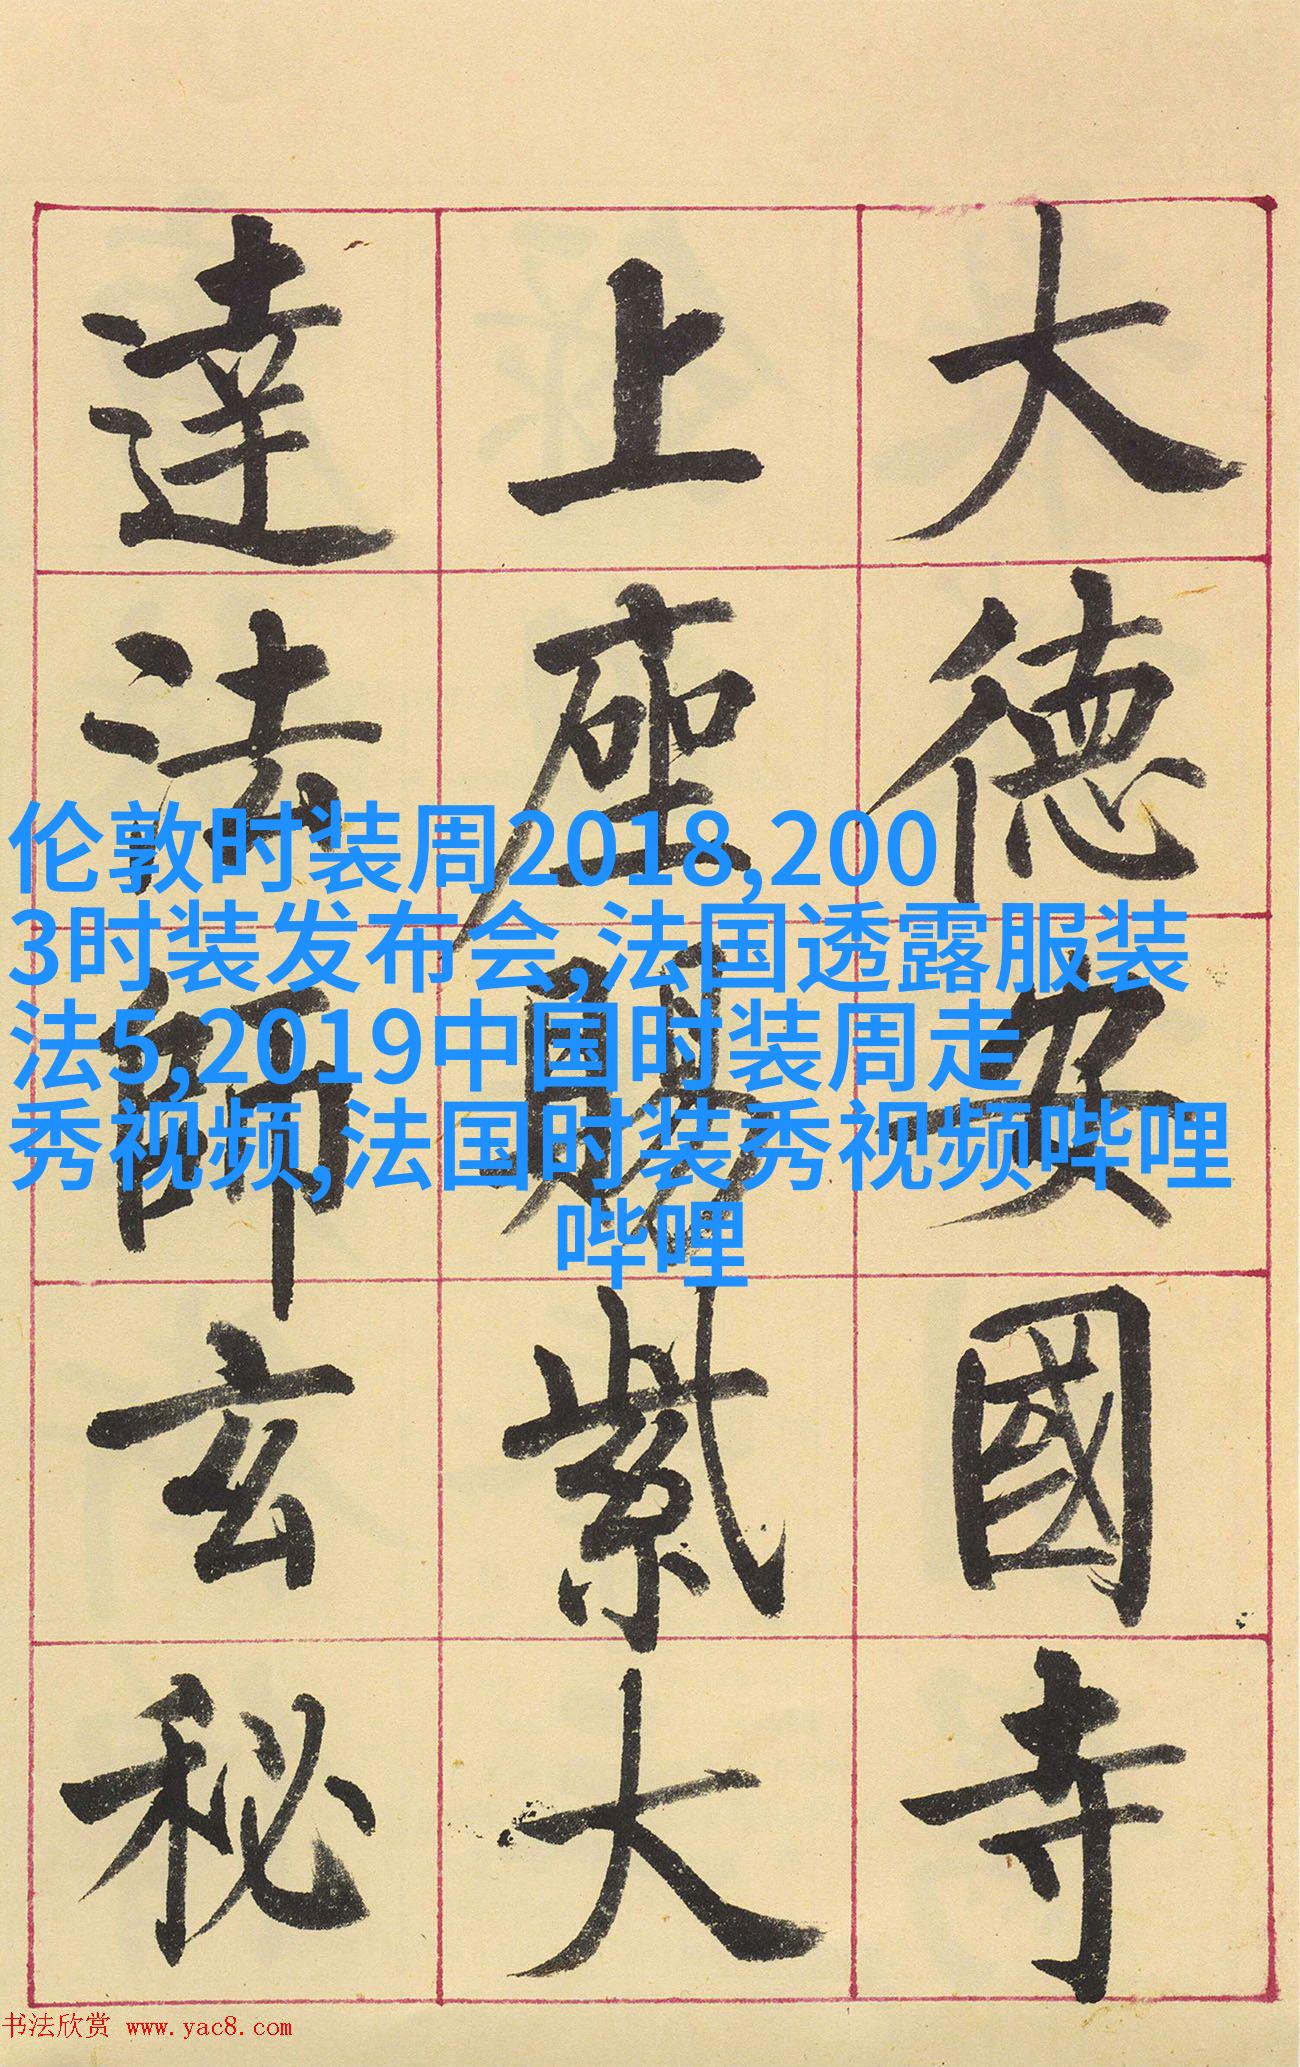 大德安國寺
上座賜紫大
達法師玄秘
伦敦时装周2018,200
3时装发布会,法国透露服装
法5,2019中国时装周走
秀视频,法国时装秀视频哔哩
哔哩
书法欣赏 www.yac8.com